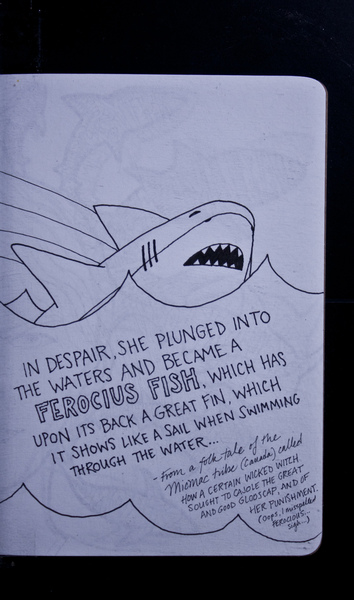 IN DESPAIR, SHE PLUNGED INTO
THE WATERS AND BECAME A
FEROCIUS FISH, WHICH HAS
UPON ITS BACK A GREAT FIN, WHICH
IT SHOWS LIKE A SAIL WHEN SWIMMING
THROUGH THE WATER...
- From a folk-tale of the
Micmac tribe (Canada) called
HOW A CERTAIN WICKED WITCH
SOUGHT TO CAJOLE THE GREAT
AND GOOD GLOOSCAP, AND OF
HER PUNISHMENT.
(Oops, I misspelled
FEROCIOUS...
Sigh...)